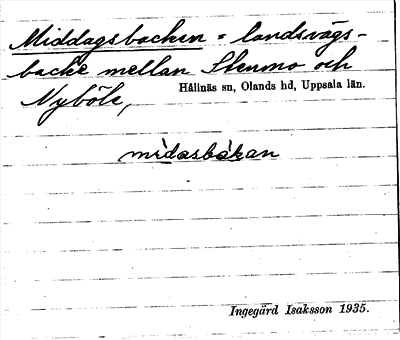 Middagsbacken = landsvägs-
backe mellan Stenmo och
Nyböle,
Hållnäs sn, Olands hd, Uppsala län.
mìdasbàkan
Ingegärd Isaksson 1935.